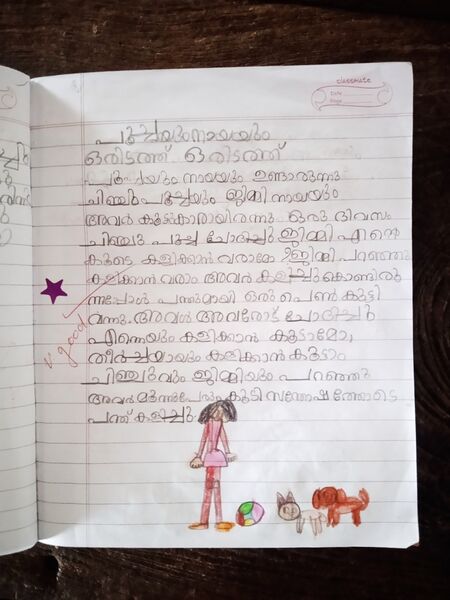 classmate
Date
Page
പൂച്ചയുംനായയും
ഒരിടത്ത് ഒരിടത്ത്
പൂച്ചയും നായയും ഉണ്ടാരുന്നു
ചിഞ്ചു പൂച്ചയും ജിമ്മി നായയും
അവർ കൂട്ടുകാരായിരന്നു. ഒരു ദിവസം
ചിഞ്ചു പൂച്ച ചോദിച്ചു ജിമ്മി എന്റെ
കൂടെ കളിക്കാൻ വരാമോ ജിമ്മി പറഞ്ഞു
കളിക്കാൻ വരാം അവർ കളിച്ചു കൊണ്ടിരു
ന്നപ്പോൾ പന്തുമായി ഒരു പെൺ കുട്ടി
വന്നു. അവൾ അവരോട് ചോദിച്ചു
എന്നെയും കളിക്കാൻ കൂടാമോ,
തീർച്ചയായും കളിക്കാൻ കൂടാം
ചിഞ്ചുവും ജിമ്മിയും പറഞ്ഞു
അവർ മൂന്നുപേരും കൂടി സന്തോഷത്തോടെ
പന്ത് കളിച്ചു.
v. good